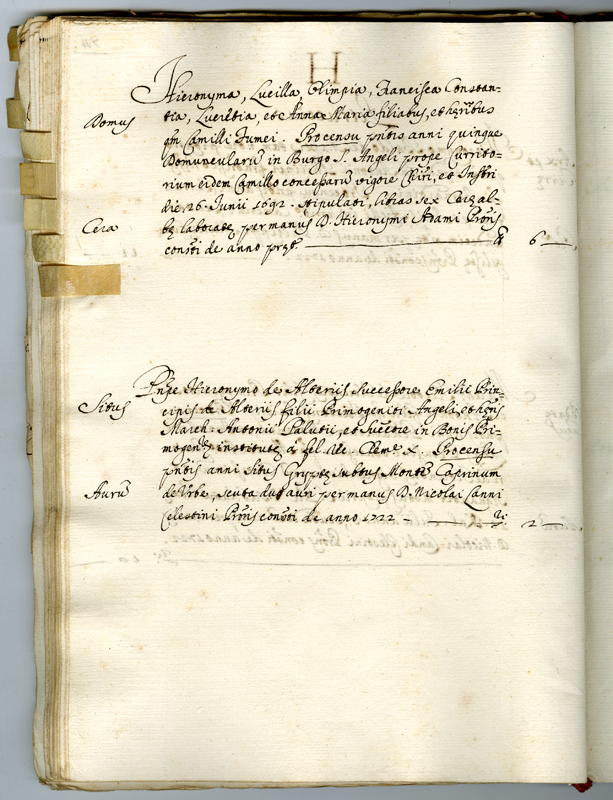 H
Hieronyma, Lucilla Olimpia, Francisca Constan=
tia, Lucretia, et Anna Maria filiabus, et hęribus
Domus
qm Camilli Fumei. Procensu pñtis anni quinque
Domuncularũ in Burgo S. Angeli prope Currito=
rium eidem Camillo concessarũ vigore et Instri
die 26 Junii 1692. stipulati, libras sex Cerę al=
Cera
bę laboratę per manus D. Hieronymi Adami
de anno 6
Hieronymo de Alteriis Successore Emilii Prin=
Situs
cipis de Alteriis filii Primogeniti Angeli, et
March. Antonii Palutii, et in Bonis Pri=
institutę à fel. Clem. X. Procensu
pñtis anni Situs Gryptę subtus Montẽ Caprinum
Aurũ
de Urbe, scuta duo auri per manus D. Nicolai Canni
Celestini de anno 1722 2